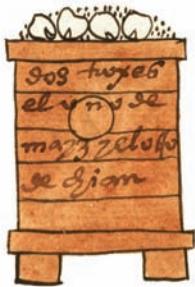 dos troxes
el vno de
mayz yel otro
de chian